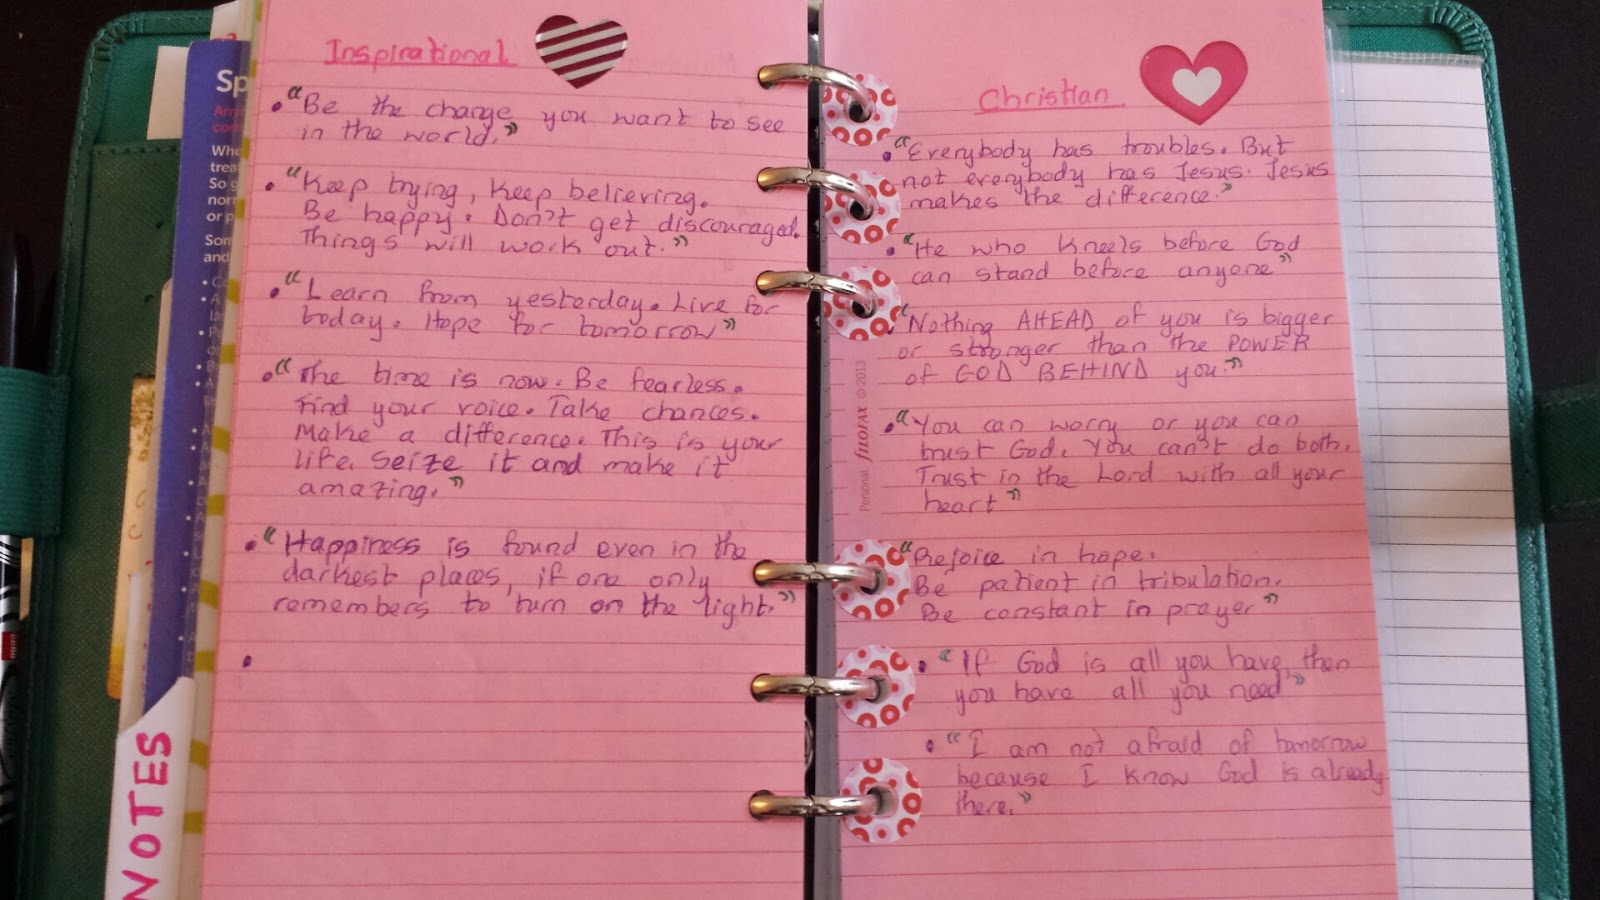 Inspirational
• "Be the change you want to see
in the world."
• "Keep trying, Keep believing.
Be happy. Don't get discouraged.
Things will work out."
• "Learn from yesterday. Live for
today. Hope for tomorrow"
• "The time is now. Be fearless.
Find your voice. Take chances.
Make a difference. This is your
life. Seize it and make it
amazing."
• "Happiness is found even in the
darkest places, if one only
remembers to turn on the light."
•
Christian
• "Everybody has troubles. But
not everybody has Jesus. Jesus
makes the difference."
• "He who kneels before God
can stand before anyone"
• "Nothing AHEAD of you is bigger
or stronger than the POWER
of GOD BEHIND you."
• "You can worry or you can
trust God. You can't do both.
Trust in the Lord with all your
heart"
"Rejoice in hope.
Be patient in tribulation.
Be constant in prayer"
• "If God is all you have, then
you have all you need"
• "I am not afraid of tomorrow
because I know God is already
there."
Personal FILOFAX © 2013
NOTES
Sp